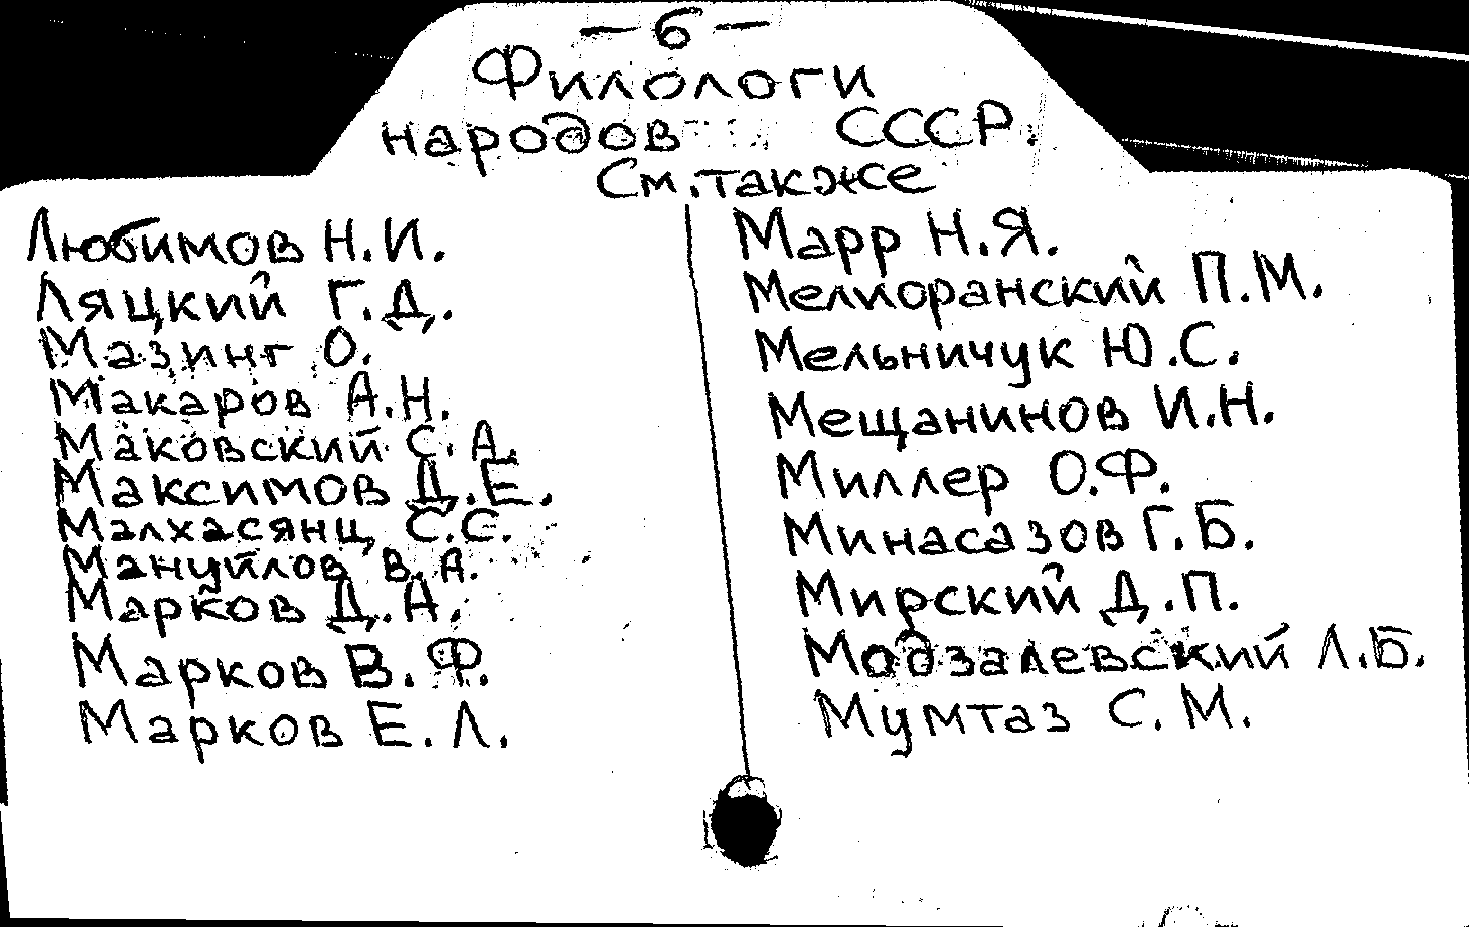 — 6 —
Филологи
народов СССР.
См. также
Любимов Н.И.
Ляцкий Г.Д.
Мазинг О.
Макаров А.Н.
Маковский С.А.
Максимов Д.Е.
Малхасянц С.С.
Мануйлов В.А.
Марков Д.А.
Марков В.Ф.
Марков Е.Л.
Марр Н.Я.
Мелиоранский П.М.
Мельничук Ю.С.
Мещанинов И.Н.
Миллер О.Ф.
Минасазов Г.Б.
Мирский Д.П.
Модзалевский Л.Б.
Мумтаз С.М.